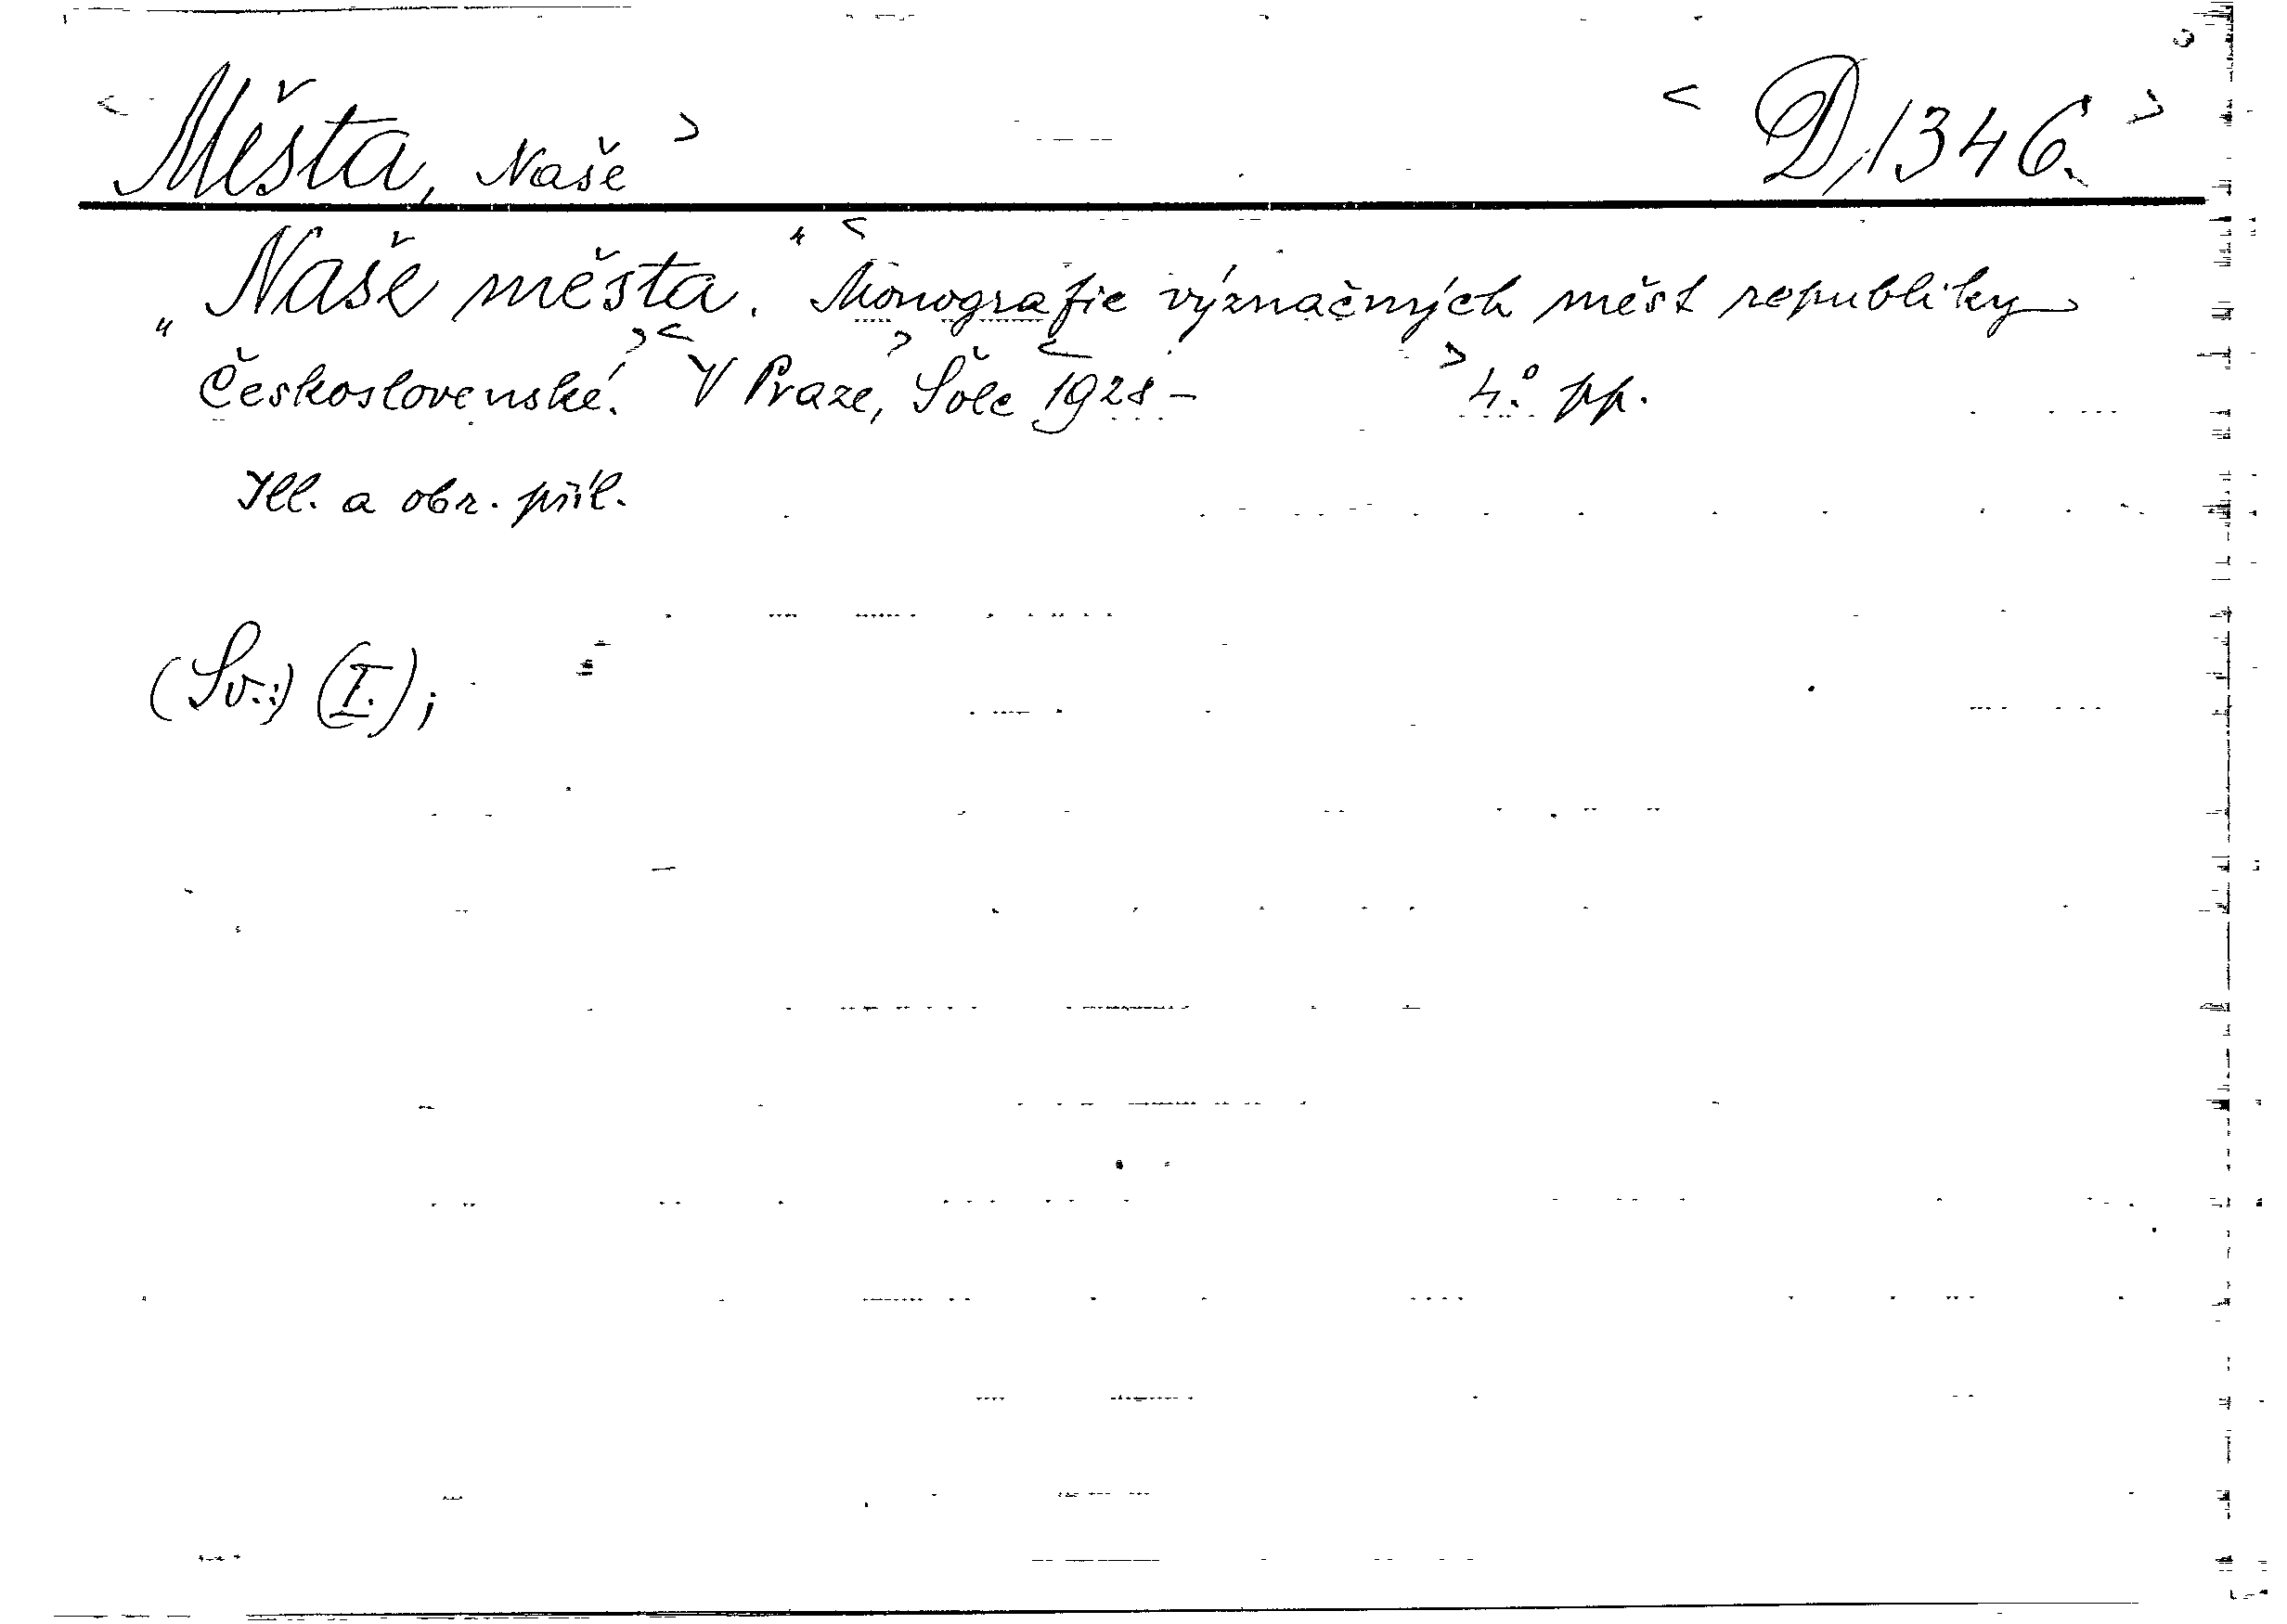 < Města, Naše > < D, 1346. >
„Naše města.“ < Monografie význačných měst republiky
Československé. > < V Praze, > Šolc < 1928 - > 4.° pp.
Ill. a obr. příl.
(Sv.:) (I.);